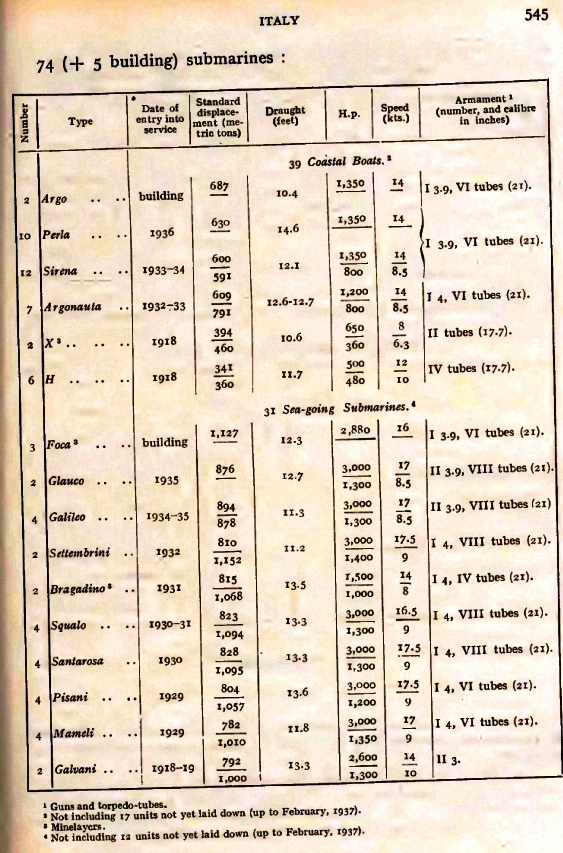 ITALY
545
74 (+ 5 building) submarines :
Number
Type
* Date of entry into service
Standard displace-ment (me-tric tons)
Draught (feet)
H.p.
Speed (kts.)
Armament ¹ (number, and calibre in inches)
39 Coastal Boats.²
2 Argo .. .. building 687 — 10.4 1,350 — 14 — I 3.9, VI tubes (21).
10 Perla .. .. 1936 630 — 14.6 1,350 — 14 —
I 3.9, VI tubes (21).
12 Sirena .. .. 1933-34 600 591 12.1 1,350 800 14 8.5
7 Argonauta .. 1932-33 609 791 12.6-12.7 1,200 800 14 8.5 I 4, VI tubes (21).
2 X ³ .. .. 1918 394 460 10.6 650 360 8 6.3 II tubes (17.7).
6 H .. .. .. 1918 341 360 11.7 500 480 12 10 IV tubes (17.7).
31 Sea-going Submarines.⁴
3 Foca ³ .. .. building 1,127 — 12.3 2,880 — 16 — I 3.9, VI tubes (21).
2 Glauco .. .. 1935 876 — 12.7 3,000 1,300 17 8.5 II 3.9, VIII tubes (21).
4 Galileo .. .. 1934-35 894 878 11.3 3,000 1,300 17 8.5 II 3.9, VIII tubes (21)
2 Settembrini .. 1932 810 1,152 11.2 3,000 1,400 17.5 9 I 4, VIII tubes (21).
2 Bragadino ³ .. 1931 815 1,068 13.5 1,500 1,000 14 8 I 4, IV tubes (21).
4 Squalo .. .. 1930-31 823 1,094 13.3 3,000 1,300 16.5 9 I 4, VIII tubes (21).
4 Santarosa .. 1930 828 1,095 13.3 3,000 1,300 17.5 9 I 4, VIII tubes (21).
4 Pisani .. .. 1929 804 1,057 13.6 3,000 1,200 17.5 9 I 4, VI tubes (21).
4 Mameli .. .. 1929 782 1,010 11.8 3,000 1,350 17 9 I 4, VI tubes (21).
2 Galvani .. .. 1918-19 792 1,000 13.3 2,600 1,300 14 10 II 3.
¹ Guns and torpedo-tubes.
² Not including 17 units not yet laid down (up to February, 1937).
³ Minelayers.
⁴ Not including 12 units not yet laid down (up to February, 1937).